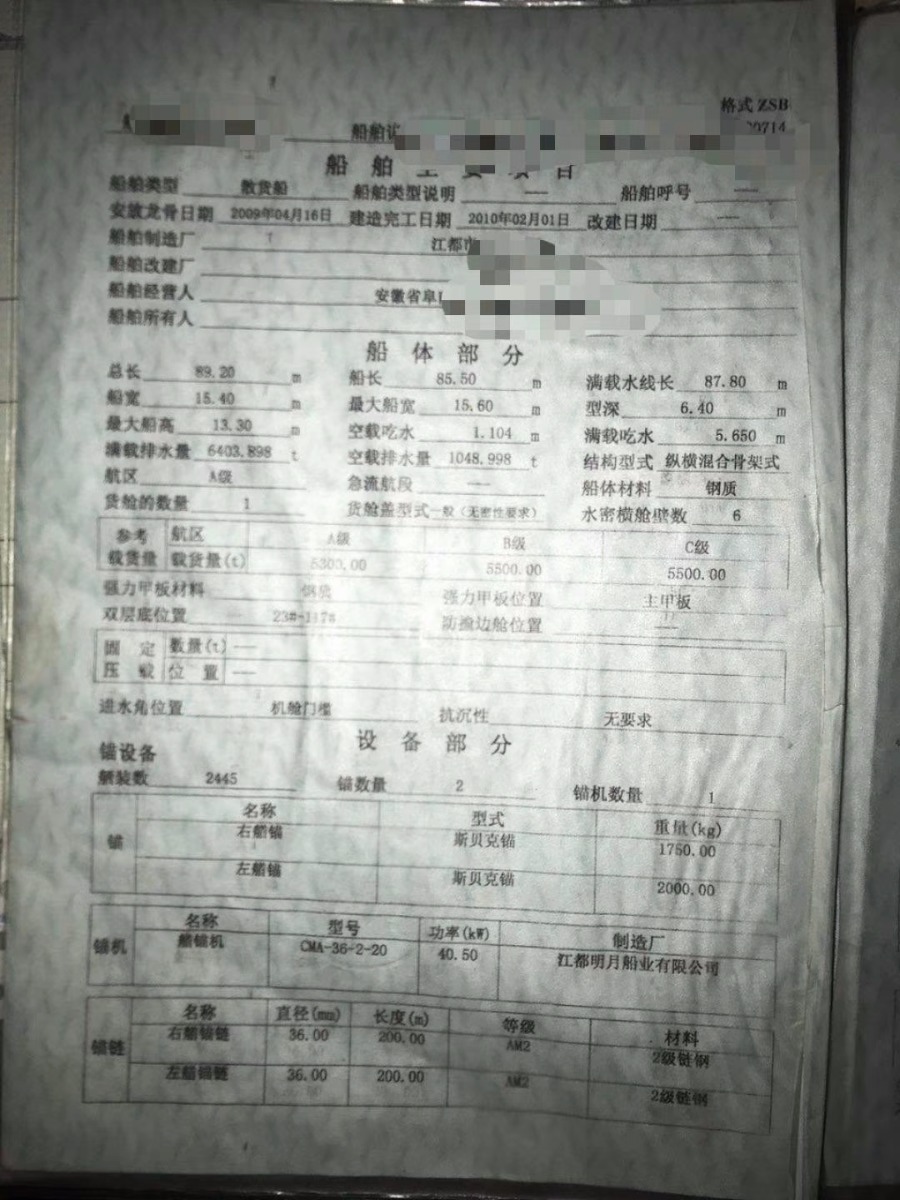 格式 ZSB
船舶
0714
船舶主要项目
船舶类型 散货船 船舶类型说明 —— 船舶呼号 ——
安放龙骨日期 2009年04月16日 建造完工日期 2010年02月01日 改建日期 ——
船舶制造厂 江都市
船舶改建厂
船舶经营人 安徽省阜
船舶所有人
船体部分
总长 89.20 m 船长 85.50 m 满载水线长 87.80 m
船宽 15.40 m 最大船宽 15.60 m 型深 6.40 m
最大船高 13.30 m 空载吃水 1.104 m 满载吃水 5.650 m
满载排水量 6403.898 t 空载排水量 1048.998 t 结构型式 纵横混合骨架式
航区 A级 急流航段 —— 船体材料 钢质
货舱的数量 1 货舱盖型式 一般(无密性要求) 水密横舱壁数 6
参考 航区 A级 B级 C级
载货量 载货量(t) 5300.00 5500.00 5500.00
强力甲板材料 钢质 强力甲板位置 主甲板
双层底位置 23#-117# 防撞边舱位置 ——
固定 数量(t) ——
压载 位置 ——
进水角位置 机舱门槛 抗沉性 无要求
设备部分
锚设备
舾装数 2445 锚数量 2 锚机数量 1
名称 型式 重量(kg)
锚 右艏锚 斯贝克锚 1750.00
左艏锚 斯贝克锚 2000.00
名称 型号 功率(kW) 制造厂
锚机 艏锚机 CMA-36-2-20 40.50 江都明月船业有限公司
名称 直径(mm) 长度(m) 等级 材料
锚链 右艏锚链 36.00 200.00 AM2 2级链钢
左艏锚链 36.00 200.00 AM2 2级链钢